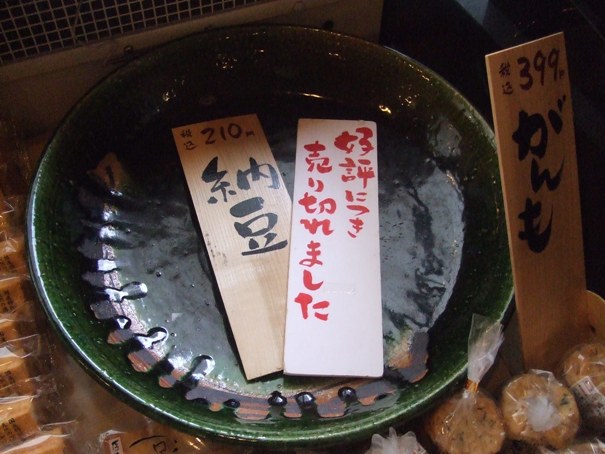 税込 210円
納豆
好評につき
売り切れました
税込 399円
がんも